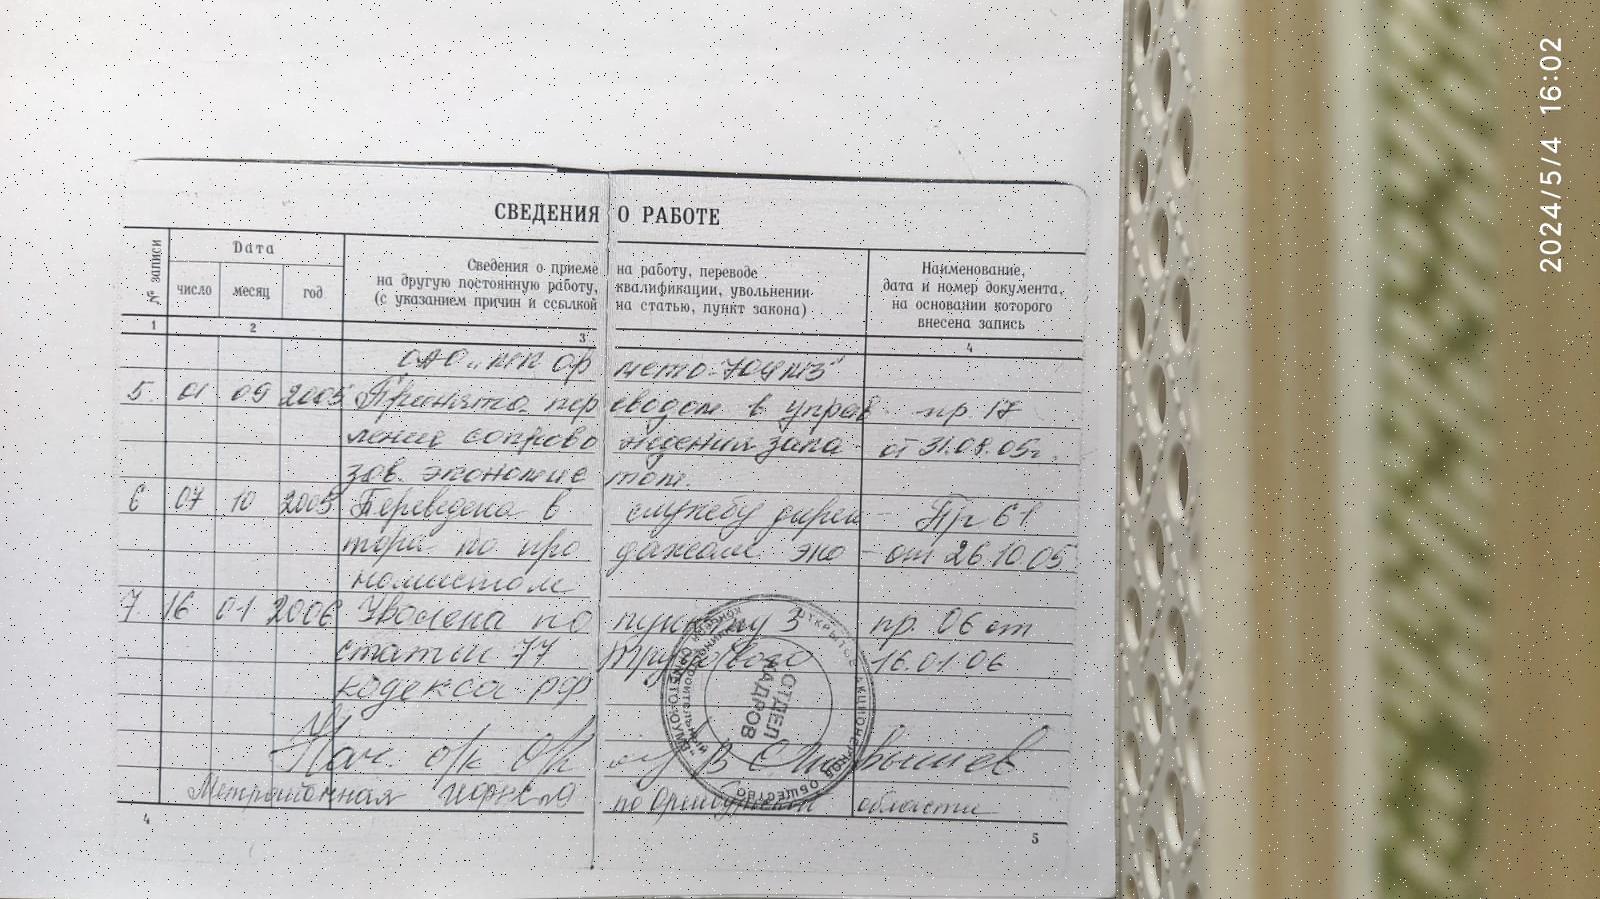 СВЕДЕНИЯ О РАБОТЕ
№ записи
Дата
число месяц год
Сведения о приеме на работу, переводе
на другую постоянную работу, квалификации, увольнении
(с указанием причин и ссылкой на статью, пункт закона)
Наименование,
дата и номер документа,
на основании которого
внесена запись
1 2 3 4
ОАО
5 01 09 2005 Принята переводом в управ- пр. 17
ление сопровождения зака- от 31.08.05г.
зов. экономистом.
6 07 10 2005 Переведена в службу дирек- Пр 61
тора по продажам эко- от 26.10.05
номистом
7. 16 01 2006 Уволена по пункту 3 пр. 06 от
статьи 77 Трудового 16.01.06
кодекса РФ
Нач. о/к
по Оренбургской области
ОТКРЫТОЕ АКЦИОНЕРНОЕ ОБЩЕСТВО
ОТДЕЛ
КАДРОВ
4
5
2024/5/4 16:02